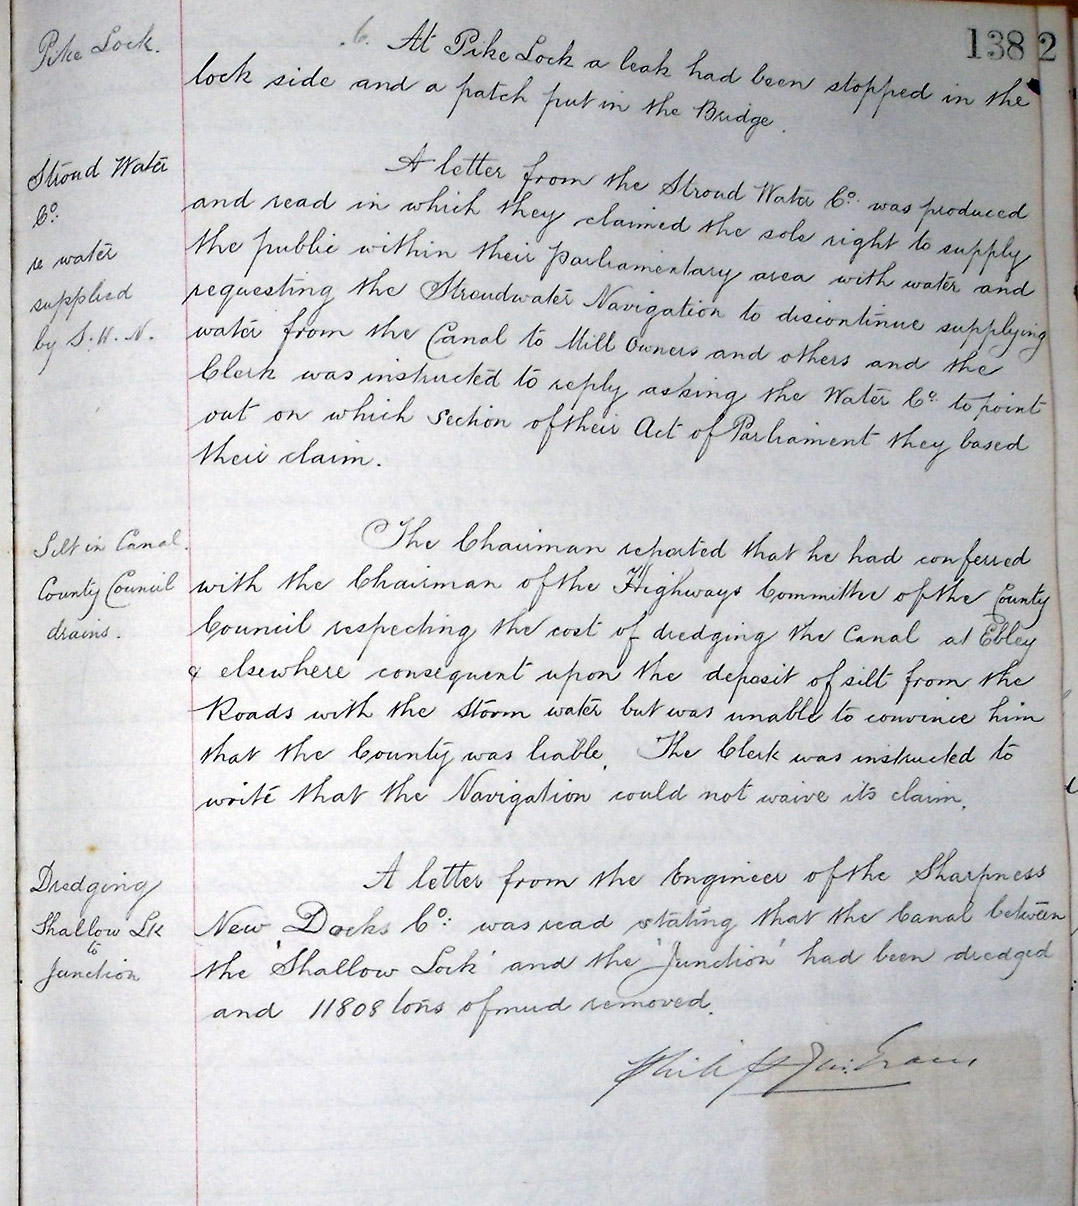 138 2
Pike Lock.
.6. At Pike Lock a leak had been stopped in the
lock side and a patch put in the Bridge.
Stroud Water
Co:
re water
supplied
by S.W.N.
A letter from the Stroud Water Co. was produced
and read in which they claimed the sole right to supply
the public within their parliamentary area with water and
requesting the Stroudwater Navigation to discontinue supplying
water from the Canal to Mill Owners and others and the
Clerk was instructed to reply asking the Water Co. to point
out on which section of their Act of Parliament they based
their claim.
Silt in Canal.
County Council
drains.
The Chairman reported that he had conferred
with the Chairman of the Highways Committee of the County
Council respecting the cost of dredging the Canal at Ebley
& elsewhere consequent upon the deposit of silt from the
Roads with the storm water but was unable to convince him
that the County was liable. The Clerk was instructed to
write that the Navigation could not waive its claim.
Dredging
Shallow Lk
to
Junction
A letter from the Engineer of the Sharpness
New Docks Co: was read stating that the Canal between
the 'Shallow Lock' and the 'Junction' had been dredged
and 11808 tons of mud removed.